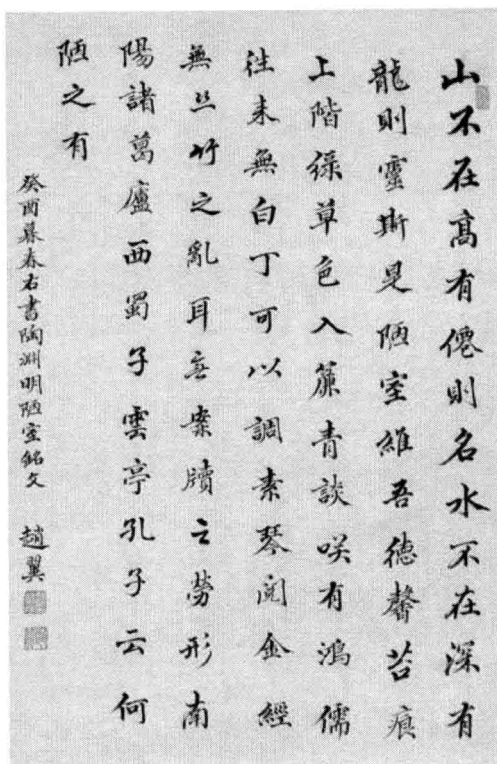 山不在高有僊則名水不在深有
龍則靈斯是陋室維吾德馨苔痕
上階綠草色入簾青談咲有鴻儒
往来無白丁可以調素琴閲金經
無丝竹之亂耳无案牘之勞形南
陽諸葛廬西蜀子雲亭孔子云何
陋之有
癸酉暮春右書陶淵明陋室銘文 趙翼